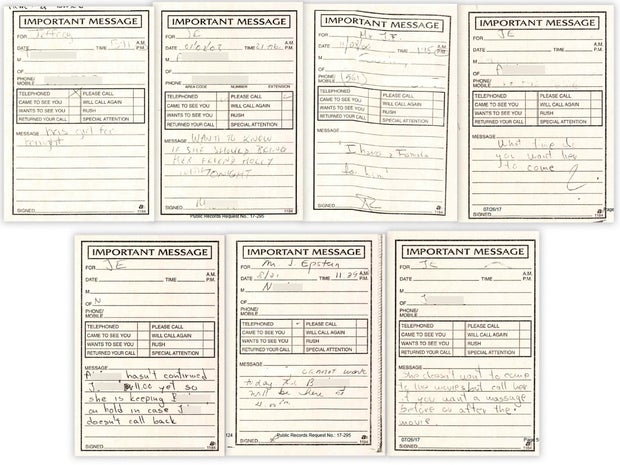 IMPORTANT MESSAGE
FOR Jeffrey
A.M.
DATE TIME 5:11 P.M.
M
OF
PHONE/
MOBILE
TELEPHONED X PLEASE CALL
CAME TO SEE YOU WILL CALL AGAIN
WANTS TO SEE YOU RUSH
RETURNED YOUR CALL SPECIAL ATTENTION
MESSAGE has girl for
tonight
SIGNED
1184
IMPORTANT MESSAGE
FOR JE
A.M.
DATE TIME P.M.
M
OF
PHONE/
MOBILE
AREA CODE NUMBER EXTENSION
TELEPHONED PLEASE CALL
CAME TO SEE YOU WILL CALL AGAIN
WANTS TO SEE YOU RUSH
RETURNED YOUR CALL SPECIAL ATTENTION
MESSAGE WANTS TO KNOW
IF SHE SHOULD BRING
HER FRIEND MOLLY
TONIGHT
SIGNED
1184
Public Records Request No.: 17-295
IMPORTANT MESSAGE
FOR Mr. J.E.
A.M.
DATE 11/08/04 TIME 1:15 P.M.
M
OF
PHONE/
MOBILE (561)
TELEPHONED PLEASE CALL
CAME TO SEE YOU WILL CALL AGAIN
WANTS TO SEE YOU RUSH
RETURNED YOUR CALL SPECIAL ATTENTION
MESSAGE
I have a Female
for him
SIGNED
1184
IMPORTANT MESSAGE
FOR JE
A.M.
DATE TIME P.M.
M A
OF
PHONE/
MOBILE
TELEPHONED PLEASE CALL
CAME TO SEE YOU WILL CALL AGAIN
WANTS TO SEE YOU RUSH
RETURNED YOUR CALL SPECIAL ATTENTION
MESSAGE
What time do
you want her
to come ?
SIGNED
1184
07/26/17 Page
IMPORTANT MESSAGE
FOR JE
A.M.
DATE TIME P.M.
M
OF N
PHONE/
MOBILE
TELEPHONED PLEASE CALL
CAME TO SEE YOU WILL CALL AGAIN
WANTS TO SEE YOU RUSH
RETURNED YOUR CALL SPECIAL ATTENTION
MESSAGE
A hasn't confirmed
J 11:00 yet so
she is keeping
on hold in case J
doesn't call back
SIGNED
1184
IMPORTANT MESSAGE
FOR Mr. J. Epstein
A.M.
DATE 8/21 TIME 11:29 P.M.
M N
OF
PHONE/
MOBILE
TELEPHONED PLEASE CALL
CAME TO SEE YOU WILL CALL AGAIN
WANTS TO SEE YOU RUSH
RETURNED YOUR CALL SPECIAL ATTENTION
MESSAGE
cannot work
today B
will be here at
SIGNED
124 Public Records Request No.: 17-295
IMPORTANT MESSAGE
FOR JE
A.M.
DATE TIME P.M.
M
OF J
PHONE/
MOBILE
TELEPHONED PLEASE CALL
CAME TO SEE YOU WILL CALL AGAIN
WANTS TO SEE YOU RUSH
RETURNED YOUR CALL SPECIAL ATTENTION
MESSAGE
She doesn't want to come
to the movies but call her
if you want a massage
before or after the
movie.
SIGNED
1184
07/26/17 Page 5